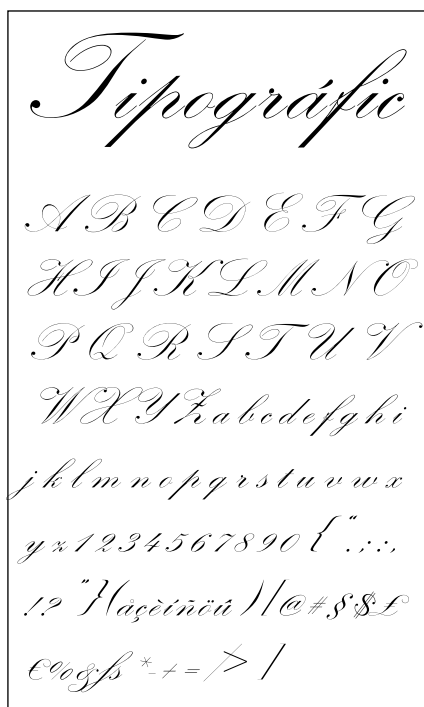 Tipográfic
A B C D E F G
H I J K L M N O
P Q R S T U V
W X Y Z a b c d e f g h i
j k l m n o p q r s t u v w x
y z 1 2 3 4 5 6 7 8 9 0 { “ . ; : ,
! ? ” } ( å ç è í ñ ö û ) | @ # § $ £
€ % & ß * - + = / > /